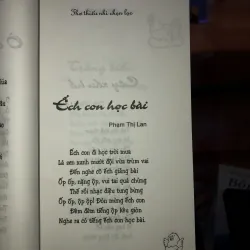 Thơ thiếu nhi chọn lọc
Ếch con học bài
Phạm Thị Lan
Ếch con đi học trời mưa
Lá sen xanh mướt đội vừa trùm vai
Đến nghe cô ếch giảng bài
Ộp ộp, nặng ộp, vui tai quá chừng
Thế rồi nhạc điệu tưng bừng
Ộp ộp, ộp ộp! Đón mừng ếch con
Đầm đầm tiếng ộp kêu giòn
Nghe ra có tiếng ếch con học bài.